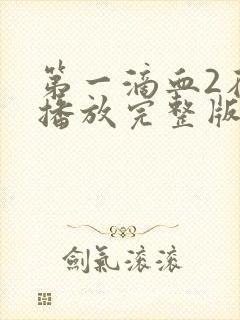 第一滴血2在
播放完整版
劍氣滚滚